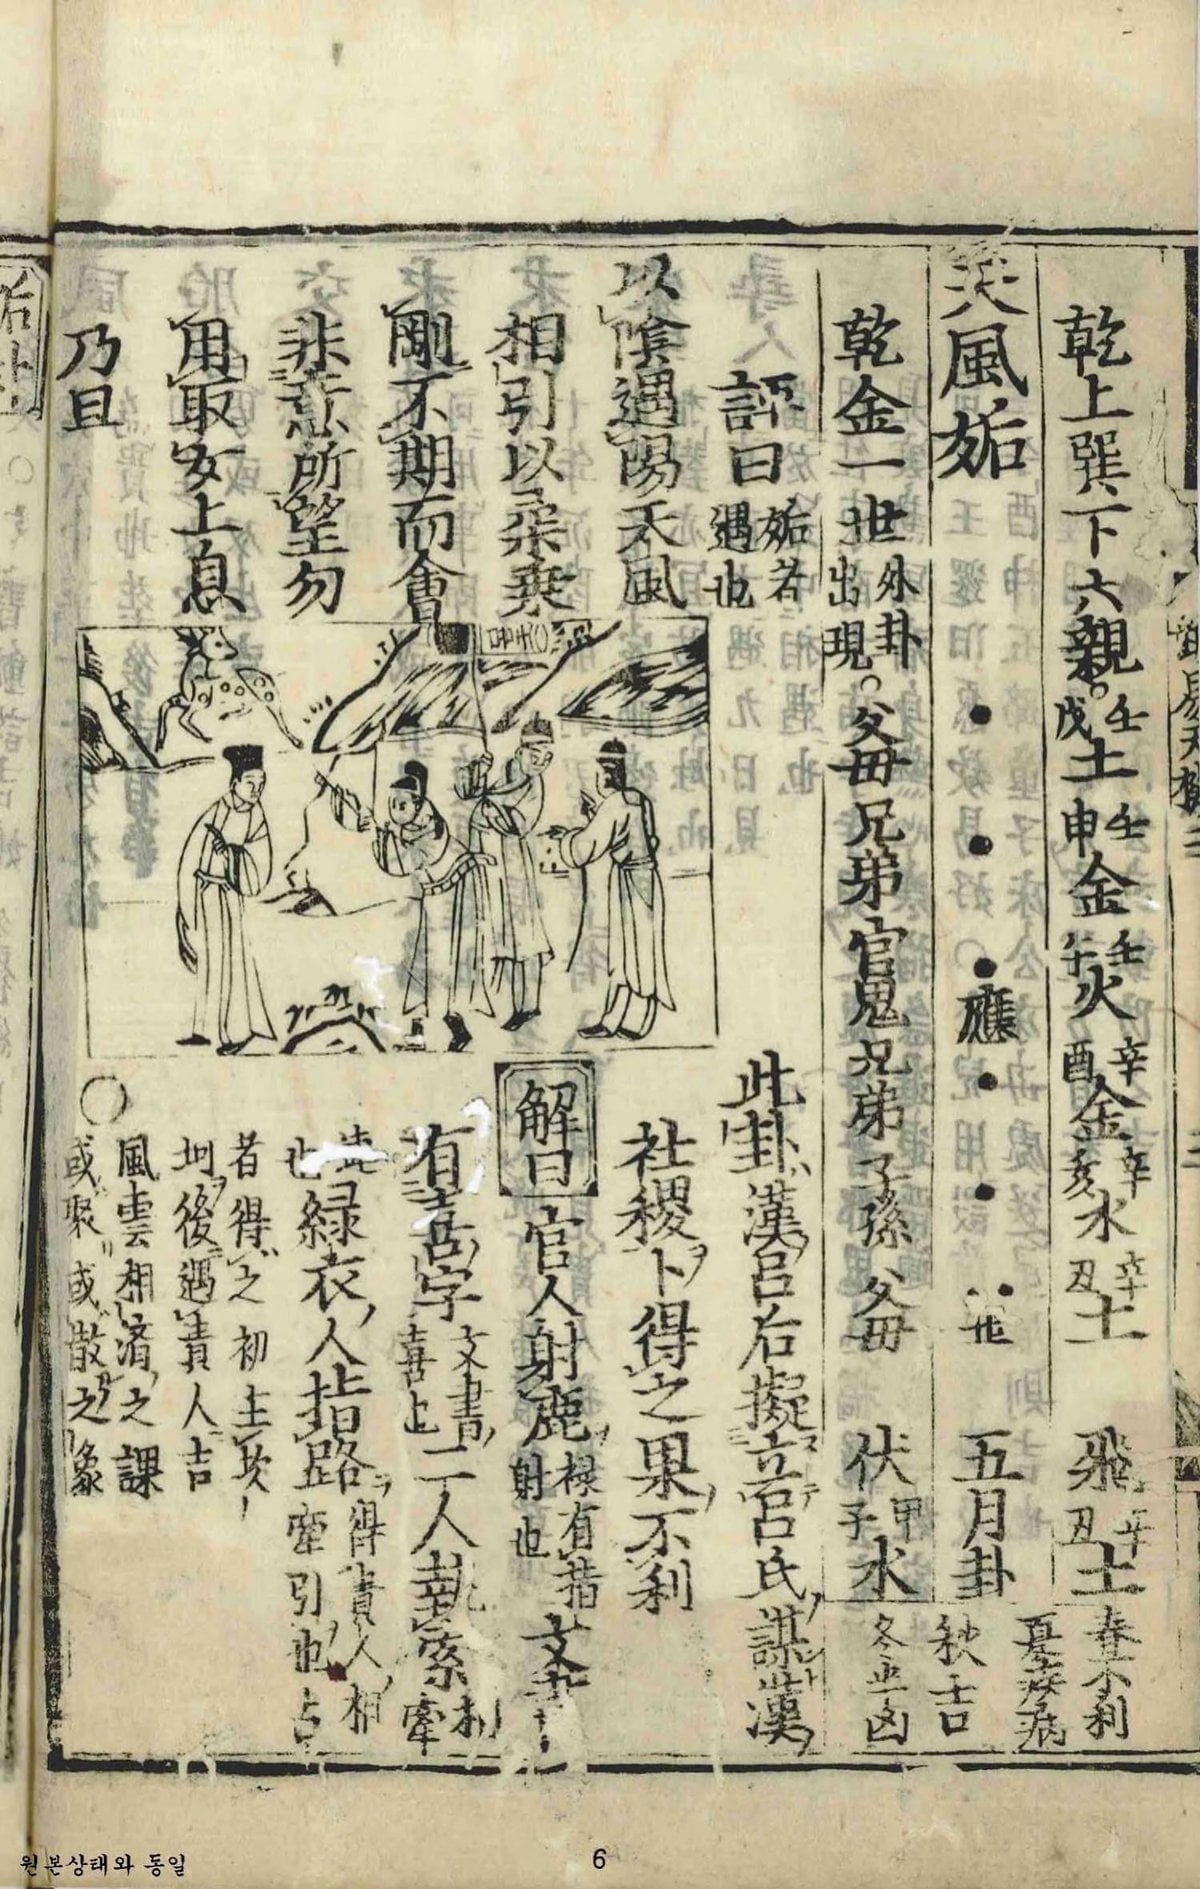 乾上巽下六親。壬戌土壬申金壬午火辛酉金辛亥水辛丑土　飛辛丑土
春不利
夏疾病
天風姤　應　世　五月卦
秋吉
冬凶
乾金一世外卦出現。父母兄弟官鬼兄弟子孫父母　伏甲子水
評曰姤者遇也
以陰遇陽天風
相引以柔乘
剛不期而會
非意所望勿
用取女上息
乃且
此卦漢呂后擬立呂氏謀漢
社稷卜得之果不利
解曰
官人射鹿祿有指射也文書
有喜字文書喜上二人執索相牽
綠衣人指路得貴人相牽引也占
者得之初主坎
坷後遇貴人吉
○風雲相濟之課
或聚或散之象
원본상태와 동일
6